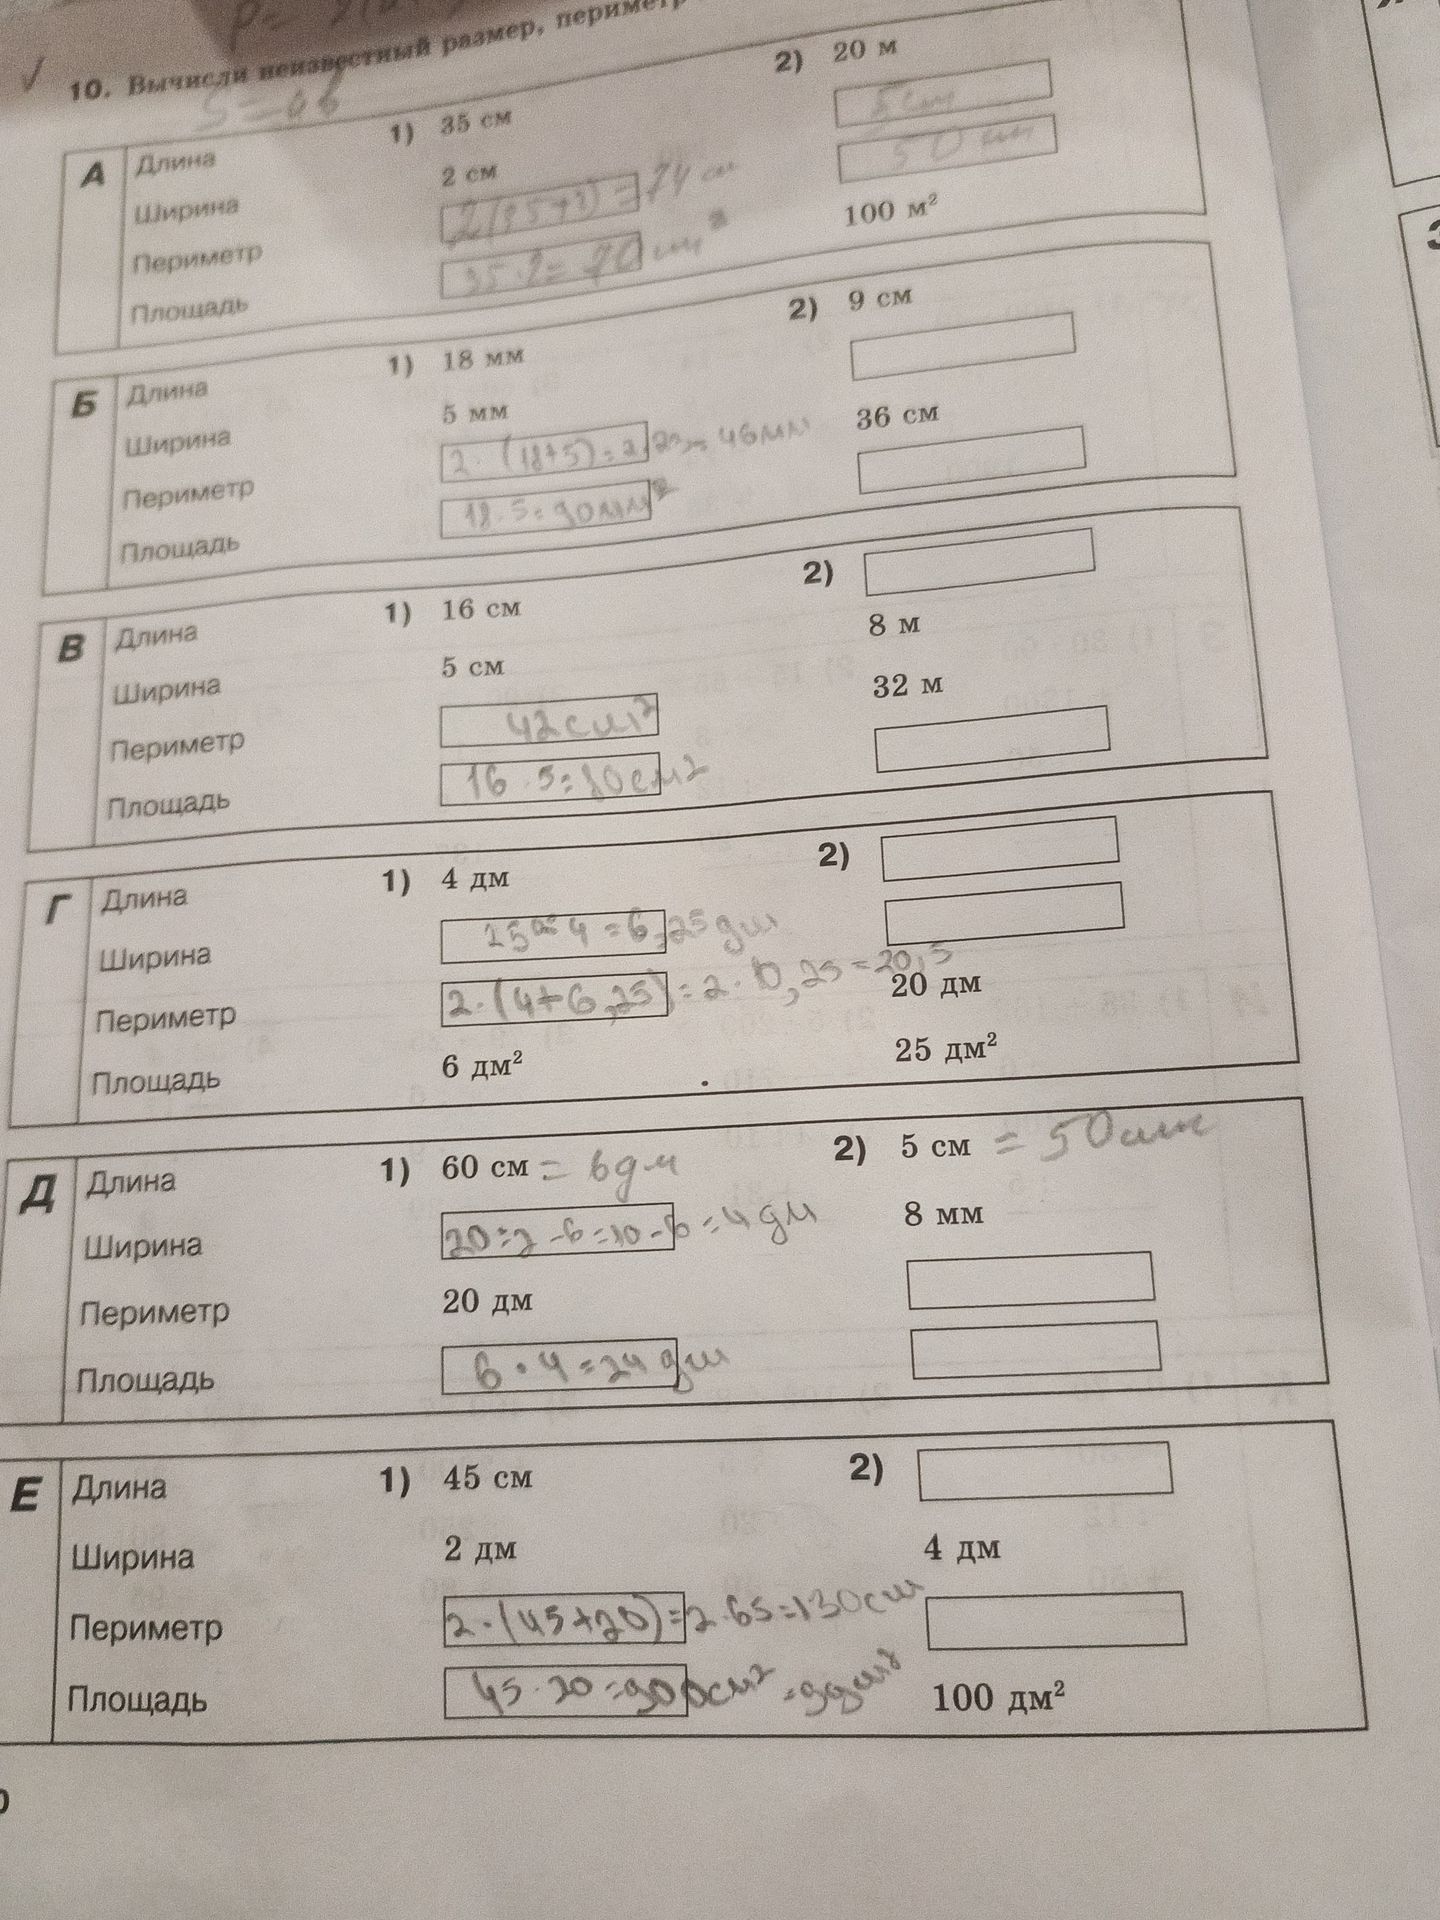 10. Вычисли неизвестный размер, периметр
S = ab
А
Длина 1) 35 см 2) 20 м
Ширина 2 см 5 см
Периметр = 74 см 50 см
Площадь 35·2 = 70 см² 100 м²
Б
Длина 1) 18 мм 2) 9 см
Ширина 5 мм
Периметр 2·(18+5)=2·23=46мм 36 см
Площадь 18·5=90мм²
В
Длина 1) 16 см 2)
Ширина 5 см 8 м
Периметр 42см² 32 м
Площадь 16·5=80см²
Г
Длина 1) 4 дм 2)
Ширина 25 4 = 6,25 дм
Периметр 2·(4+6,25)=2·10,25=20,5 20 дм
Площадь 6 дм² 25 дм²
Д
Длина 1) 60 см = 6дм 2) 5 см = 50мм
Ширина 20÷2-6=10-6=4 дм 8 мм
Периметр 20 дм
Площадь 6·4=24 дм
Е
Длина 1) 45 см 2)
Ширина 2 дм 4 дм
Периметр 2·(45+20)=2·65=130см
Площадь 45·20=900см² =9дм² 100 дм²